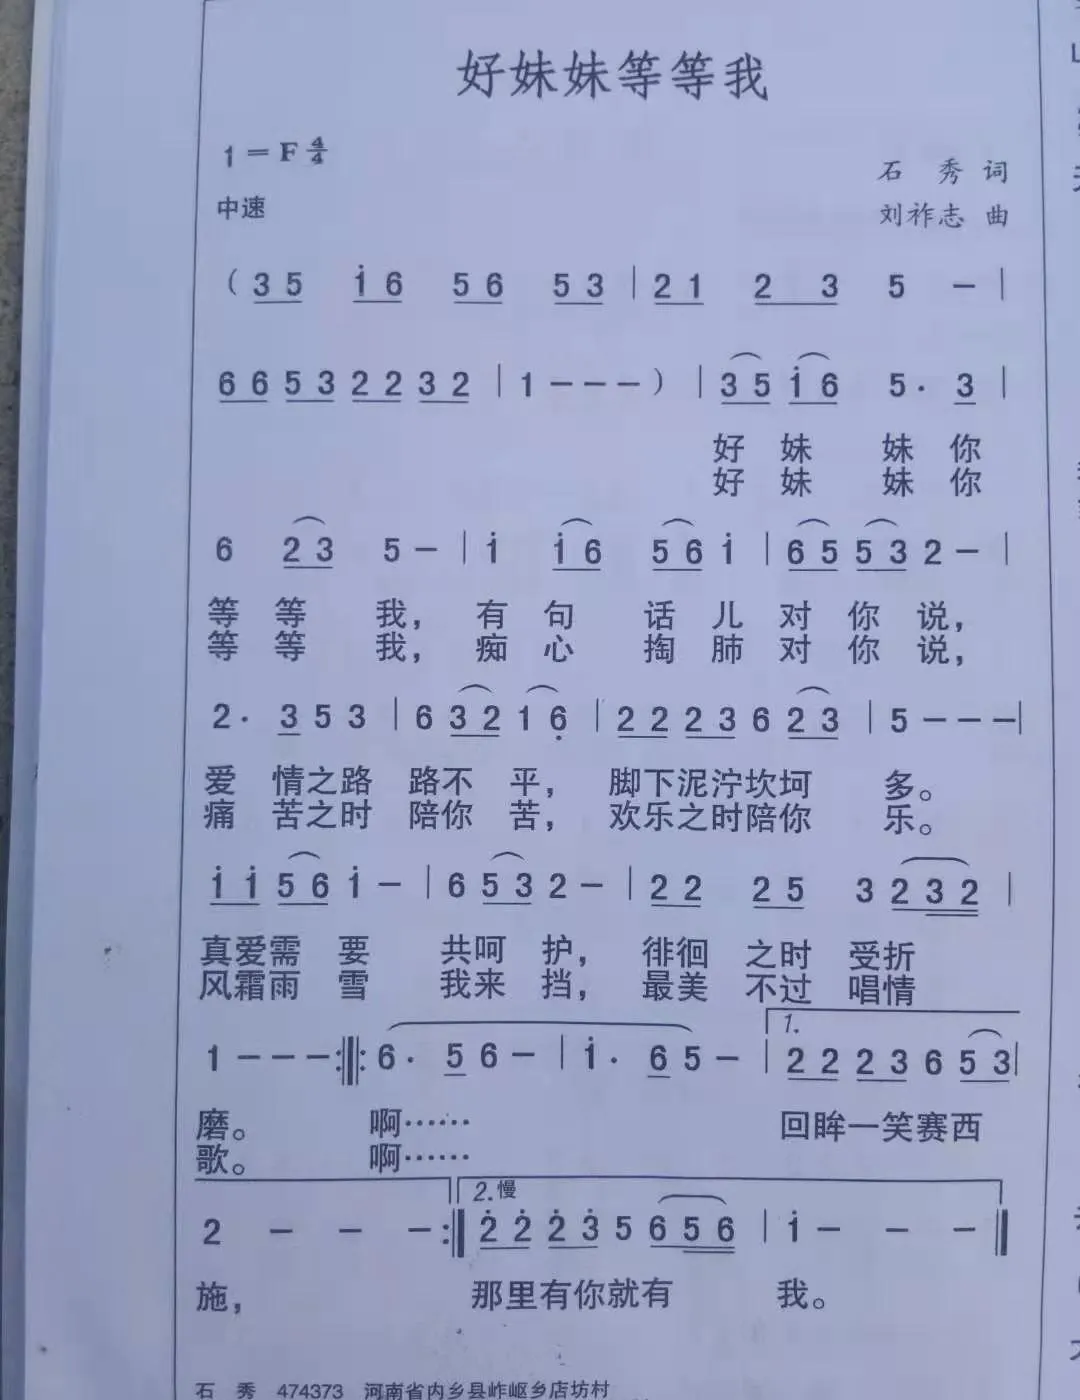 好妹妹等等我
1=F 4/4
石 秀 词
中速
刘祚志 曲
( 3 5 i 6 5 6 5 3 | 2 1 2 3 5 - |
6 6 5 3 2 2 3 2 | 1 - - - ) | 3 5 i 6 5 · 3 |
好 妹 妹 你
好 妹 妹 你
6 2 3 5 - | i i 6 5 6 i | 6 5 5 3 2 - |
等 等 我, 有 句 话 儿 对 你 说,
等 等 我, 痴 心 掏 肺 对 你 说,
2 · 3 5 3 | 6 3 2 1 6̣ | 2 2 2 3 6 2 3 | 5 - - - |
爱 情之路 路不 平, 脚下泥泞坎坷 多。
痛 苦之时 陪你 苦, 欢乐之时陪你 乐。
i i 5 6 i - | 6 5 3 2 - | 2 2 2 5 3 2 3 2 |
真爱需 要 共呵 护, 徘徊 之时 受折
风霜雨 雪 我来 挡, 最美 不过 唱情
1.
1 - - - :‖: 6 · 5 6 - | i · 6 5 - | 2 2 2 3 6 5 3 |
磨。 啊…… 回眸一笑赛西
歌。 啊……
2.慢
2 - - - :‖ 2̇ 2̇ 2̇ 3̇ 5 6 5 6 | i - - - ‖
施, 那里有你就有 我。
石 秀 474373 河南省内乡县岞岖乡店坊村